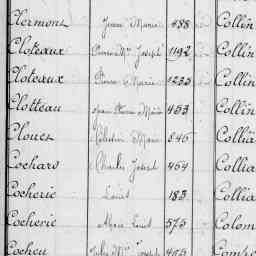 Clermont Jean Marie 488 Collin
Cloteaux Pierre Mie Joseph 1192 Collin
Cloteaux Pierre Marie 1233 Collin
Clotteau Jean Pierre Marie 453 Collin
Clouet Célestin Marie 846
Cochard Charles Joseph 464 Collia
Cocherie Louis 183 Collia
Cocherie Louis 575 Colom
Cocheu Joseph